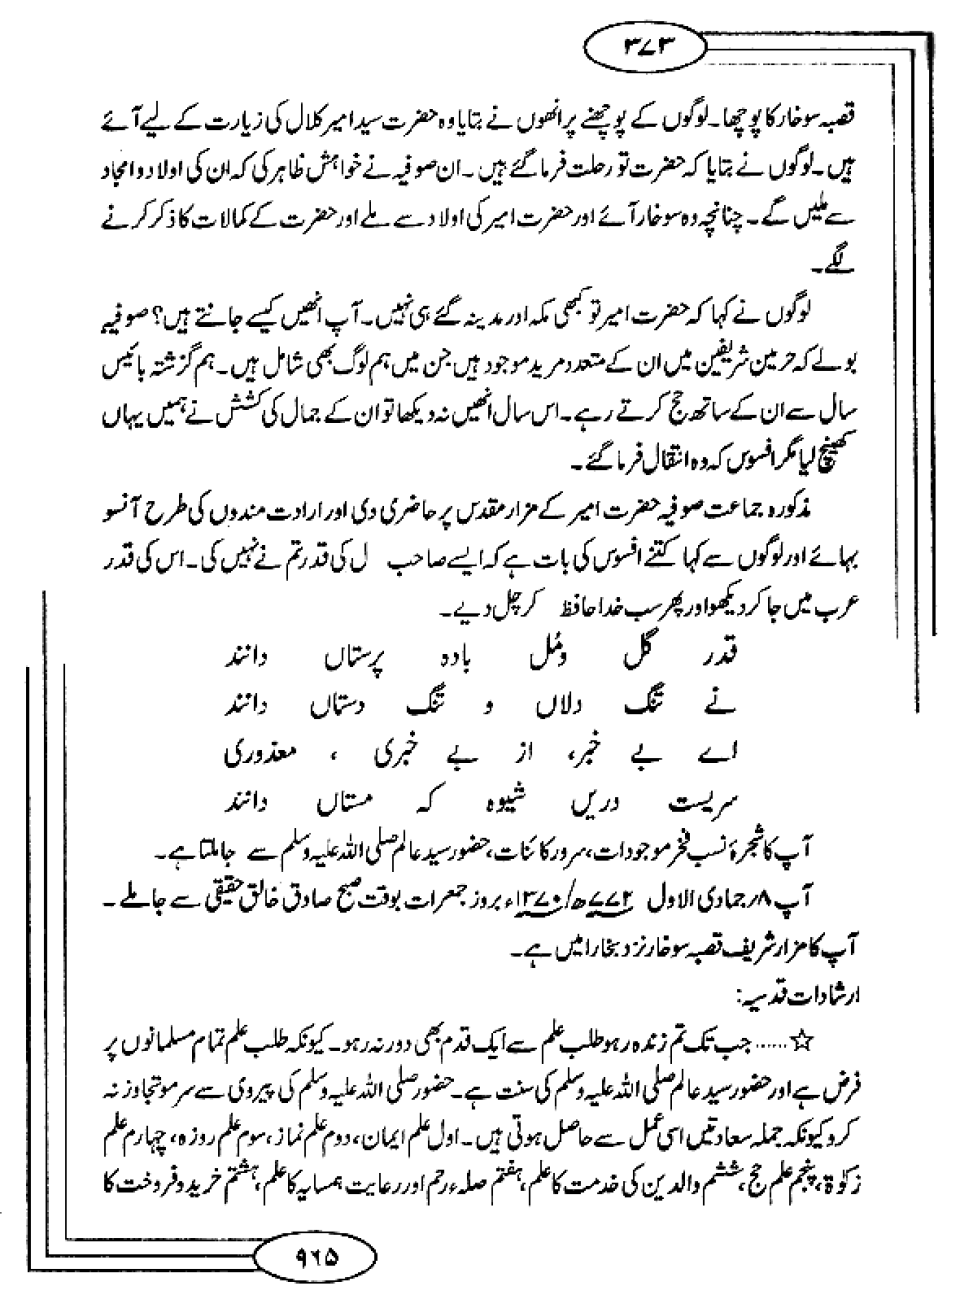 ۳۷۳
قصبہ سوخار کا پوچھا۔ لوگوں کے پوچھنے پر انھوں نے بتایا وہ حضرت سید امیر کلال کی زیارت کے لیے آئے
ہیں۔ لوگوں نے بتایا کہ حضرت تو رحلت فرما گئے ہیں۔ ان صوفیہ نے خواہش ظاہر کی کہ ان کی اولاد و امجاد
سے ملیں گے۔ چنانچہ وہ سوخار آئے اور حضرت امیر کی اولاد سے ملے اور حضرت کے کمالات کا ذکر کرنے
لگے۔
لوگوں نے کہا کہ حضرت امیر تو کبھی مکہ اور مدینہ گئے ہی نہیں۔ آپ انھیں کیسے جانتے ہیں؟ صوفیہ
بولے کہ حرمین شریفین میں ان کے متعدد مرید موجود ہیں جن میں ہم لوگ بھی شامل ہیں۔ ہم گزشتہ بائیس
سال سے ان کے ساتھ حج کرتے رہے۔ اس سال انھیں نہ دیکھا تو ان کے جمال کی کشش نے ہمیں یہاں
کھینچ لیا مگر افسوس کہ وہ انتقال فرما گئے۔
مذکورہ جماعت صوفیہ حضرت امیر کے مزار مقدس پر حاضری دی اور ارادت مندوں کی طرح آنسو
بہائے اور لوگوں سے کہا کتنے افسوس کی بات ہے کہ ایسے صاحب ل کی قدر تم نے نہیں کی۔ اس کی قدر
عرب میں جا کر دیکھو اور پھر سب خدا حافظ کر چل دیے۔
قدر گل ومُل بادہ پرستاں دانند
نے تنگ دلاں و تنگ دستاں دانند
اے بے خبر، از بے خبری ، معذوری
سریست دریں شیوہ کہ مستاں دانند
آپ کا شجرۂ نسب فخر موجودات، سرور کائنات، حضور سید عالم صلی اللہ علیہ وسلم سے جا ملتا ہے۔
آپ ۸؍ جمادی الاول ۷۷۲ھ/۱۳۷۰ء بروز جمعرات بوقت صبح صادق خالق حقیقی سے جا ملے۔
آپ کا مزار شریف قصبہ سوخار نزد بخارا میں ہے۔
ارشادات قدسیہ:
☆...... جب تک تم زندہ رہو طلب علم سے ایک قدم بھی دور نہ رہو۔ کیونکہ طلب علم تمام مسلمانوں پر
فرض ہے اور حضور سید عالم صلی اللہ علیہ وسلم کی سنت ہے۔ حضور صلی اللہ علیہ وسلم کی پیروی سے سرمو تجاوز نہ
کرو کیونکہ جملہ سعادتیں اسی عمل سے حاصل ہوتی ہیں۔ اول علم ایمان، دوم علم نماز، سوم علم روزہ، چہارم علم
زکوٰۃ، پنجم علم حج، ششم والدین کی خدمت کا علم، ہفتم صلہء رحم اور رعایت ہمسایہ کا علم، ہشتم خرید و فروخت کا
۹۶۵